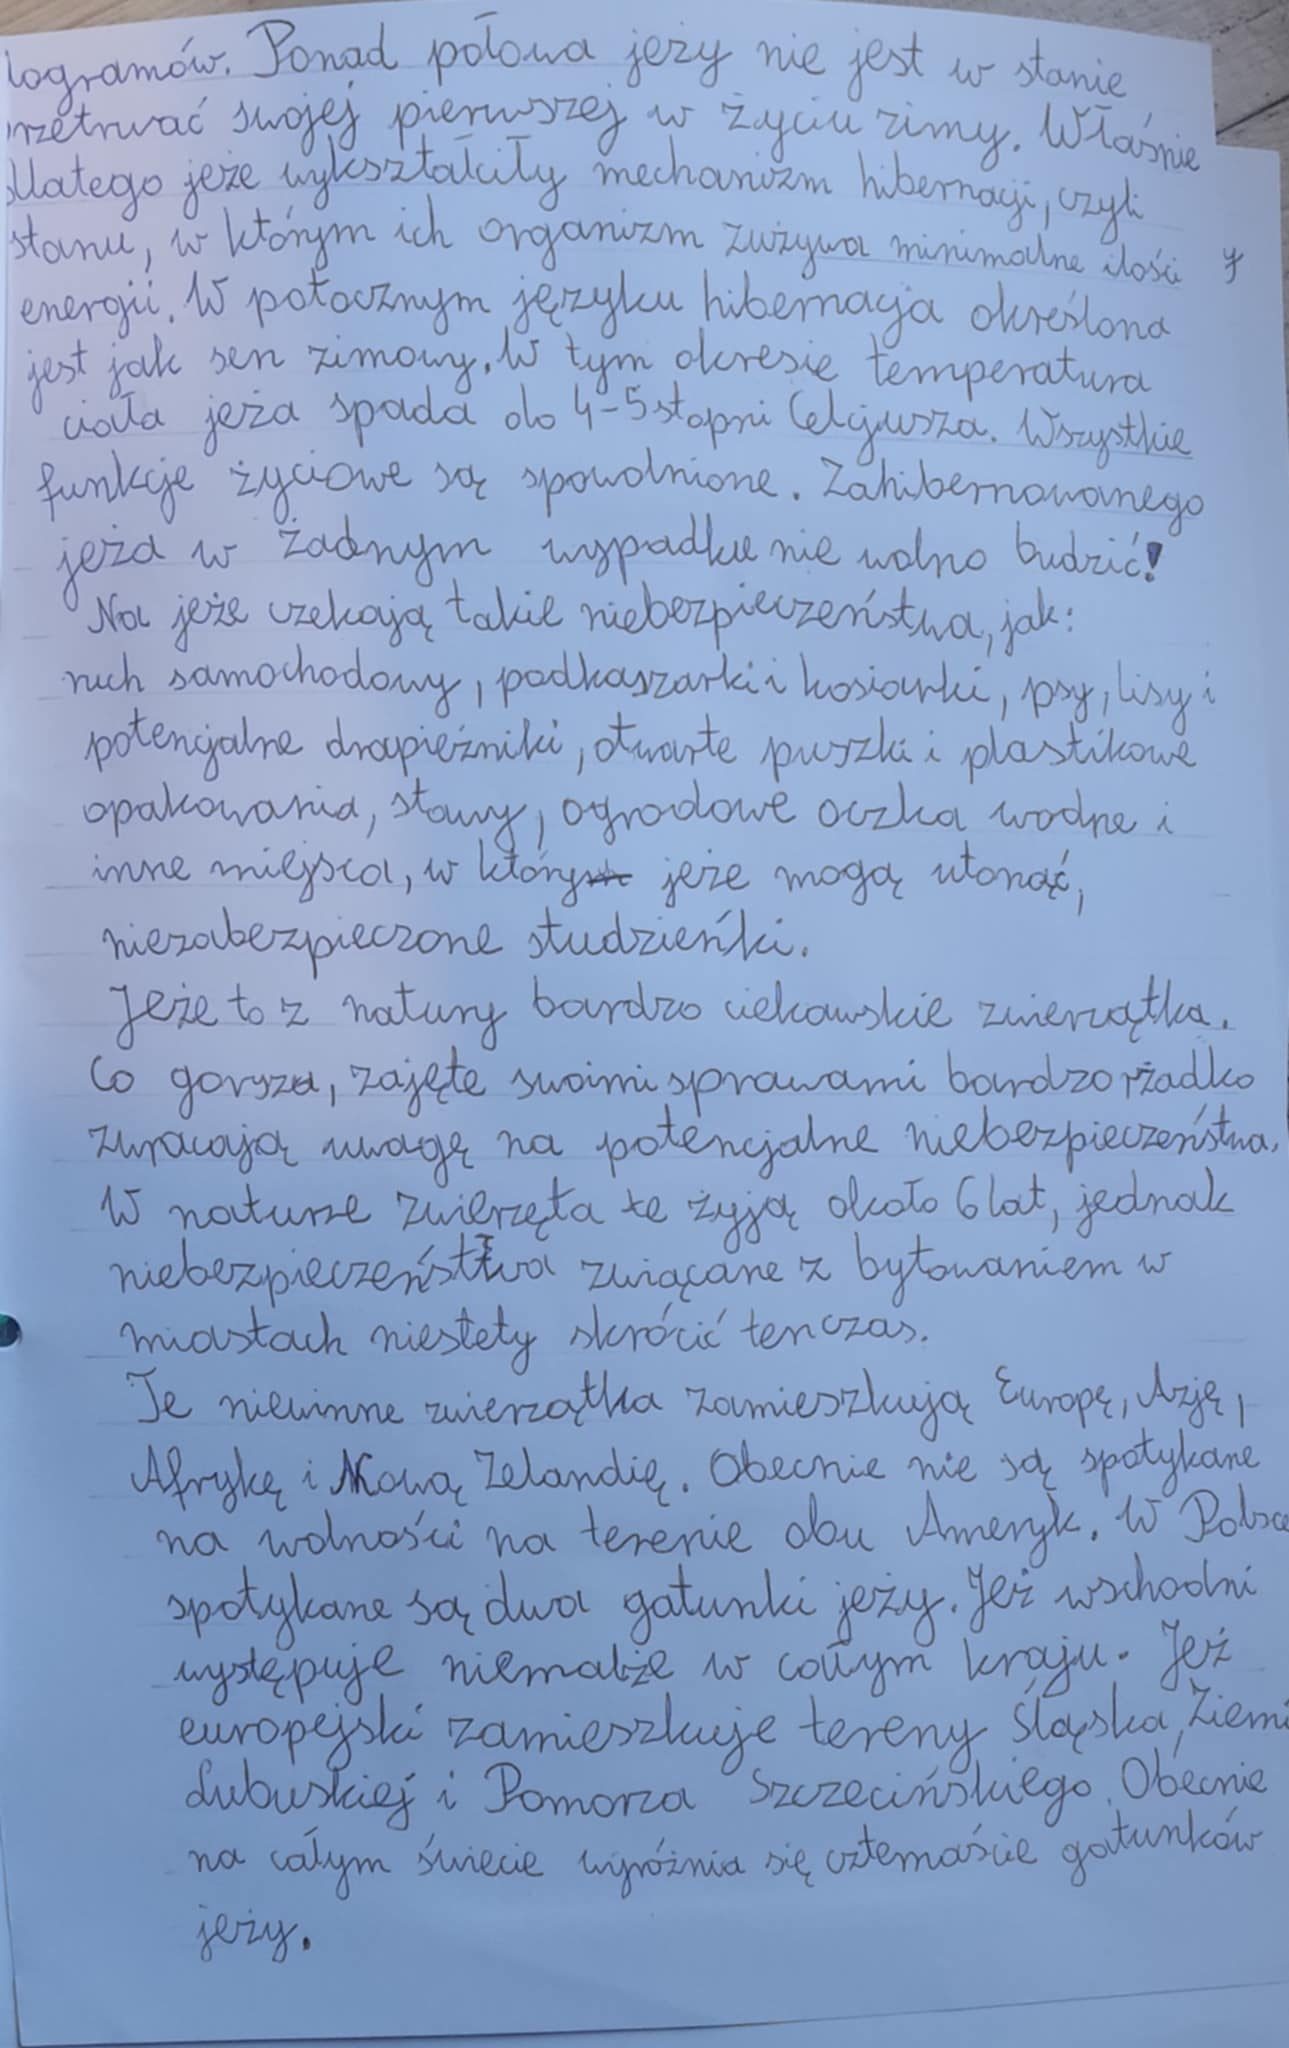 logramów. Ponad połowa jeży nie jest w stanie
rzetrwać swojej pierwszej w życiu zimy. Właśnie
dlatego jeże wykształciły mechanizm hibernacji, czyli
stanu, w którym ich organizm zużywa minimalne ilości
energii. W potocznym języku hibernacja określona
jest jak sen zimowy. W tym okresie temperatura
ciała jeża spada do 4-5 stopni Celcjusza. Wszystkie
funkcje życiowe są spowolnione. Zahibernowanego
jeża w żadnym wypadku nie wolno budzić!
Na jeże czekają takie niebezpieczeństwa, jak:
ruch samochodowy, podkaszarki i kosiarki, psy, lisy i
potencjalne drapieżniki, otwarte puszki i plastikowe
opakowania, stawy, ogrodowe oczka wodne i
inne miejsca, w który jeże mogą utonąć,
niezabezpieczone studzieńki.
Jeże to z natury bardzo ciekawskie zwierzątka.
Co gorsza, zajęte swoimi sprawami bardzo rżadko
zwracają uwagę na potencjalne niebezpieczeństwa.
W naturze zwierzęta te żyją około 6 lat, jednak
niebezpieczeństwa zwiącane z bytowaniem w
miastach niestety skrócić ten czas.
Te niewinne zwierzątka zamieszkują Europę, Azję,
Afrykę i Nową Zelandię. Obecnie nie są spotykane
na wolności na terenie obu Ameryk. W Polsce
spotykane są dwa gatunki jeży. Jeż wschodni
występuje niemalże w całym kraju. Jeż
europejski zamieszkuje tereny Śląska, Ziemi
Lubuskiej i Pomorza Szczecińskiego. Obecnie
na całym świecie wyróżnia się czternaście gatunków
jeży.